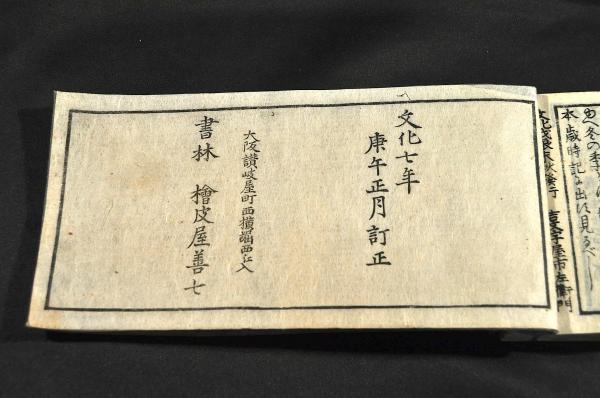 本歳時記に出た見るべし
文化七年
庚午正月訂正
大阪讃岐屋町西横堀西江入
書林 檜皮屋善七